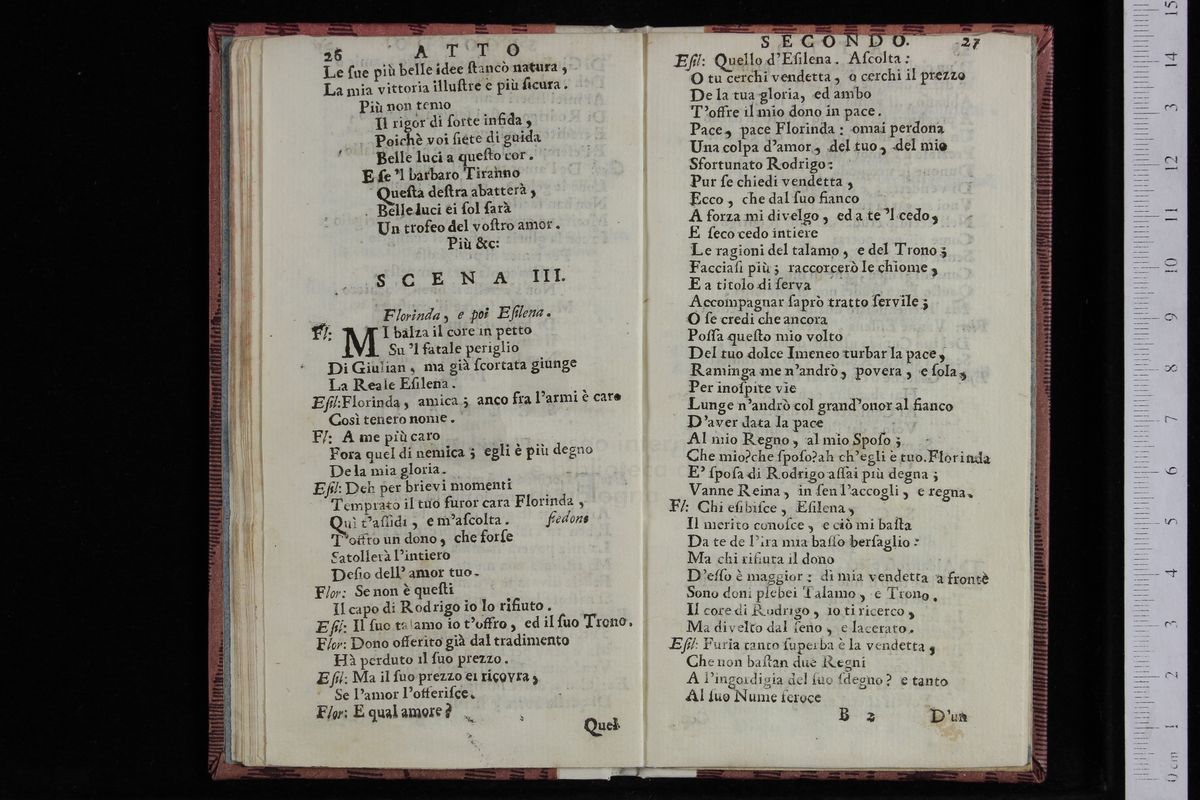 26 ATTO
Le ſue più belle idee ſtancò natura,
La mia vittoria illuſtre è più ſicura.
Più non temo
Il rigor di ſorte infida,
Poichè voi ſiete di guida
Belle luci a queſto cor.
E ſe 'l barbaro Tiranno
Queſta deſtra abatterà,
Belle luci ei ſol ſarà
Un trofeo del voſtro amor.
Più &c:
SCENA III.
Florinda, e poi Eſilena.
Fl: MI balza il core in petto
Su 'l fatale periglio
Di Giulian, ma già ſcortata giunge
La Reale Eſilena.
Eſil: Florinda, amica; anco fra l'armi è caro
Così tenero nome.
Fl: A me più caro
Fora quel di nemica; egli è più degno
De la mia gloria.
Eſil: Deh per brievi momenti
Temprato il tuo furor cara Florinda,
Quì t'aſſidi, e m'aſcolta. ſiedono
T'offro un dono, che forſe
Satollerà l'intiero
Deſio dell' amor tuo.
Flor: Se non è queſti
Il capo di Rodrigo io lo rifiuto.
Eſil: Il ſuo talamo io t'offro, ed il ſuo Trono.
Flor: Dono offerito già dal tradimento
Hà perduto il ſuo prezzo.
Eſil: Ma il ſuo prezzo ei ricovra,
Se l'amor l'offeriſce.
Flor: E qual amore?
Quel-
SECONDO. 27
Eſil: Quello d'Eſilena. Aſcolta:
O tu cerchi vendetta, o cerchi il prezzo
De la tua gloria, ed ambo
T'offre il mio dono in pace.
Pace, pace Florinda: omai perdona
Una colpa d'amor, del tuo, del mio
Sfortunato Rodrigo:
Pur ſe chiedi vendetta,
Ecco, che dal ſuo fianco
A forza mi divelgo, ed a te 'l cedo,
E ſeco cedo intiere
Le ragioni del talamo, e del Trono;
Facciaſi più; raccorcerò le chiome,
E a titolo di ſerva
Accompagnar ſaprò tratto ſervile;
O ſe credi che ancora
Poſſa queſto mio volto
Del tuo dolce Imeneo turbar la pace,
Raminga me n'andrò, povera, e ſola,
Per inoſpite vie
Lunge n'andrò col grand'onor al fianco
D'aver data la pace
Al mio Regno, al mio Spoſo;
Che mio? che ſpoſo? ah ch'egli è tuo. Florinda
E' ſpoſa di Rodrigo aſſai più degna;
Vanne Reina, in ſen l'accogli, e regna.
Fl: Chi eſibiſce, Eſilena,
Il merito conoſce, e ciò mi baſta
Da te de l'ira mia baſſo berſaglio:
Ma chi rifiuta il dono
D'eſſo è maggior: di mia vendetta a fronte
Sono doni plebei Talamo, e Trono.
Il core di Rodrigo, io ti ricerco,
Ma divelto dal ſeno, e lacerato.
Eſil: Furia tanto ſuperba è la vendetta,
Che non baſtan due Regni
A l'ingordigia del ſuo ſdegno? e tanto
Al ſuo Nume feroce
B 2 D'un